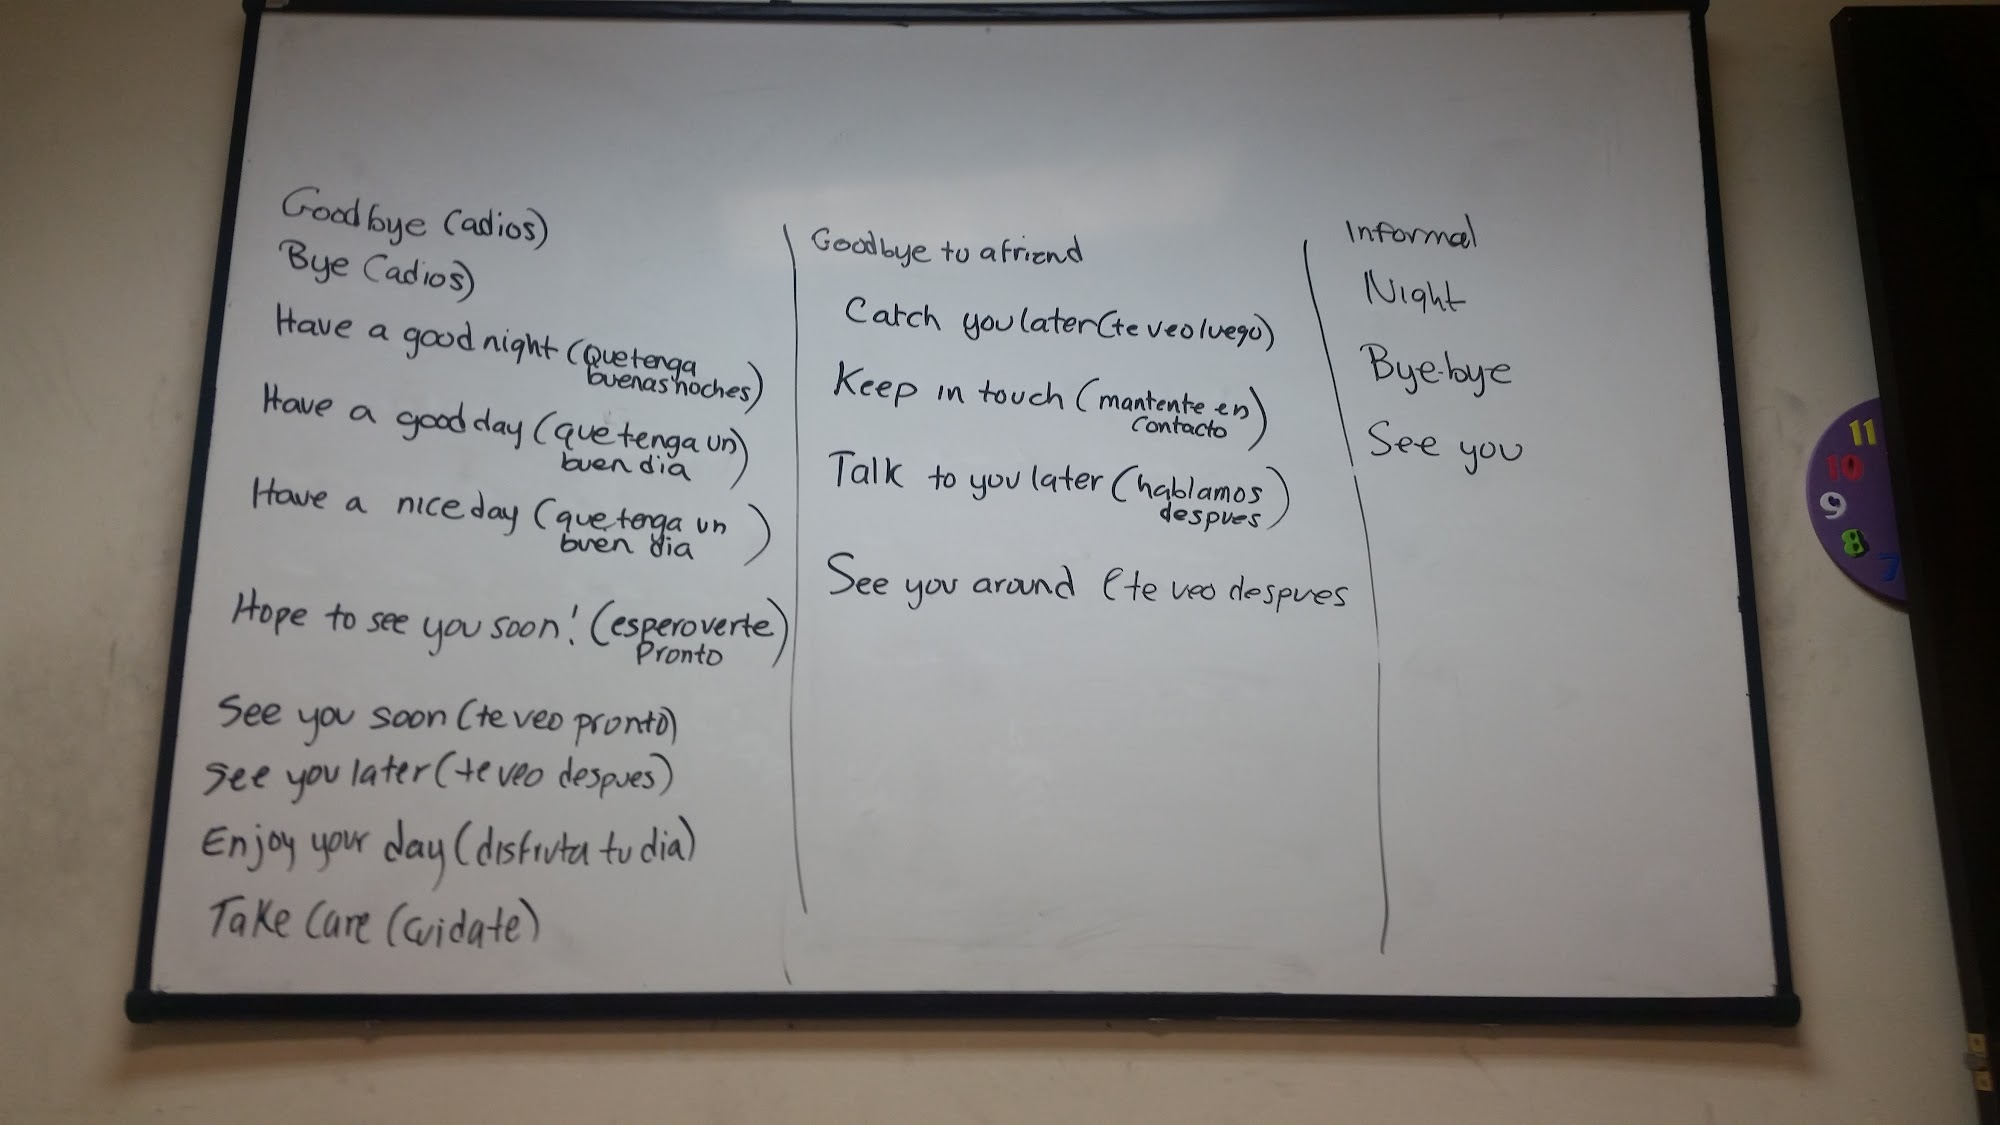 Goodbye (adios)
Bye (adios)
Have a good night (Que tenga
buenas noches)
Have a good day (que tenga un)
buen dia
Have a nice day (que tenga un )
buen dia
Hope to see you soon! (espero verte)
Pronto
See you soon (te veo pronto)
See you later (te veo despues)
Enjoy your day (disfruta tu dia)
Take Care (cuidate)
Goodbye to a friend
Catch you later (te veo luego)
Keep in touch (mantente en)
contacto
Talk to you later (hablamos
despues)
See you around (te veo despues
Informal
Night
Bye-bye
See you
11
10
9
8
7